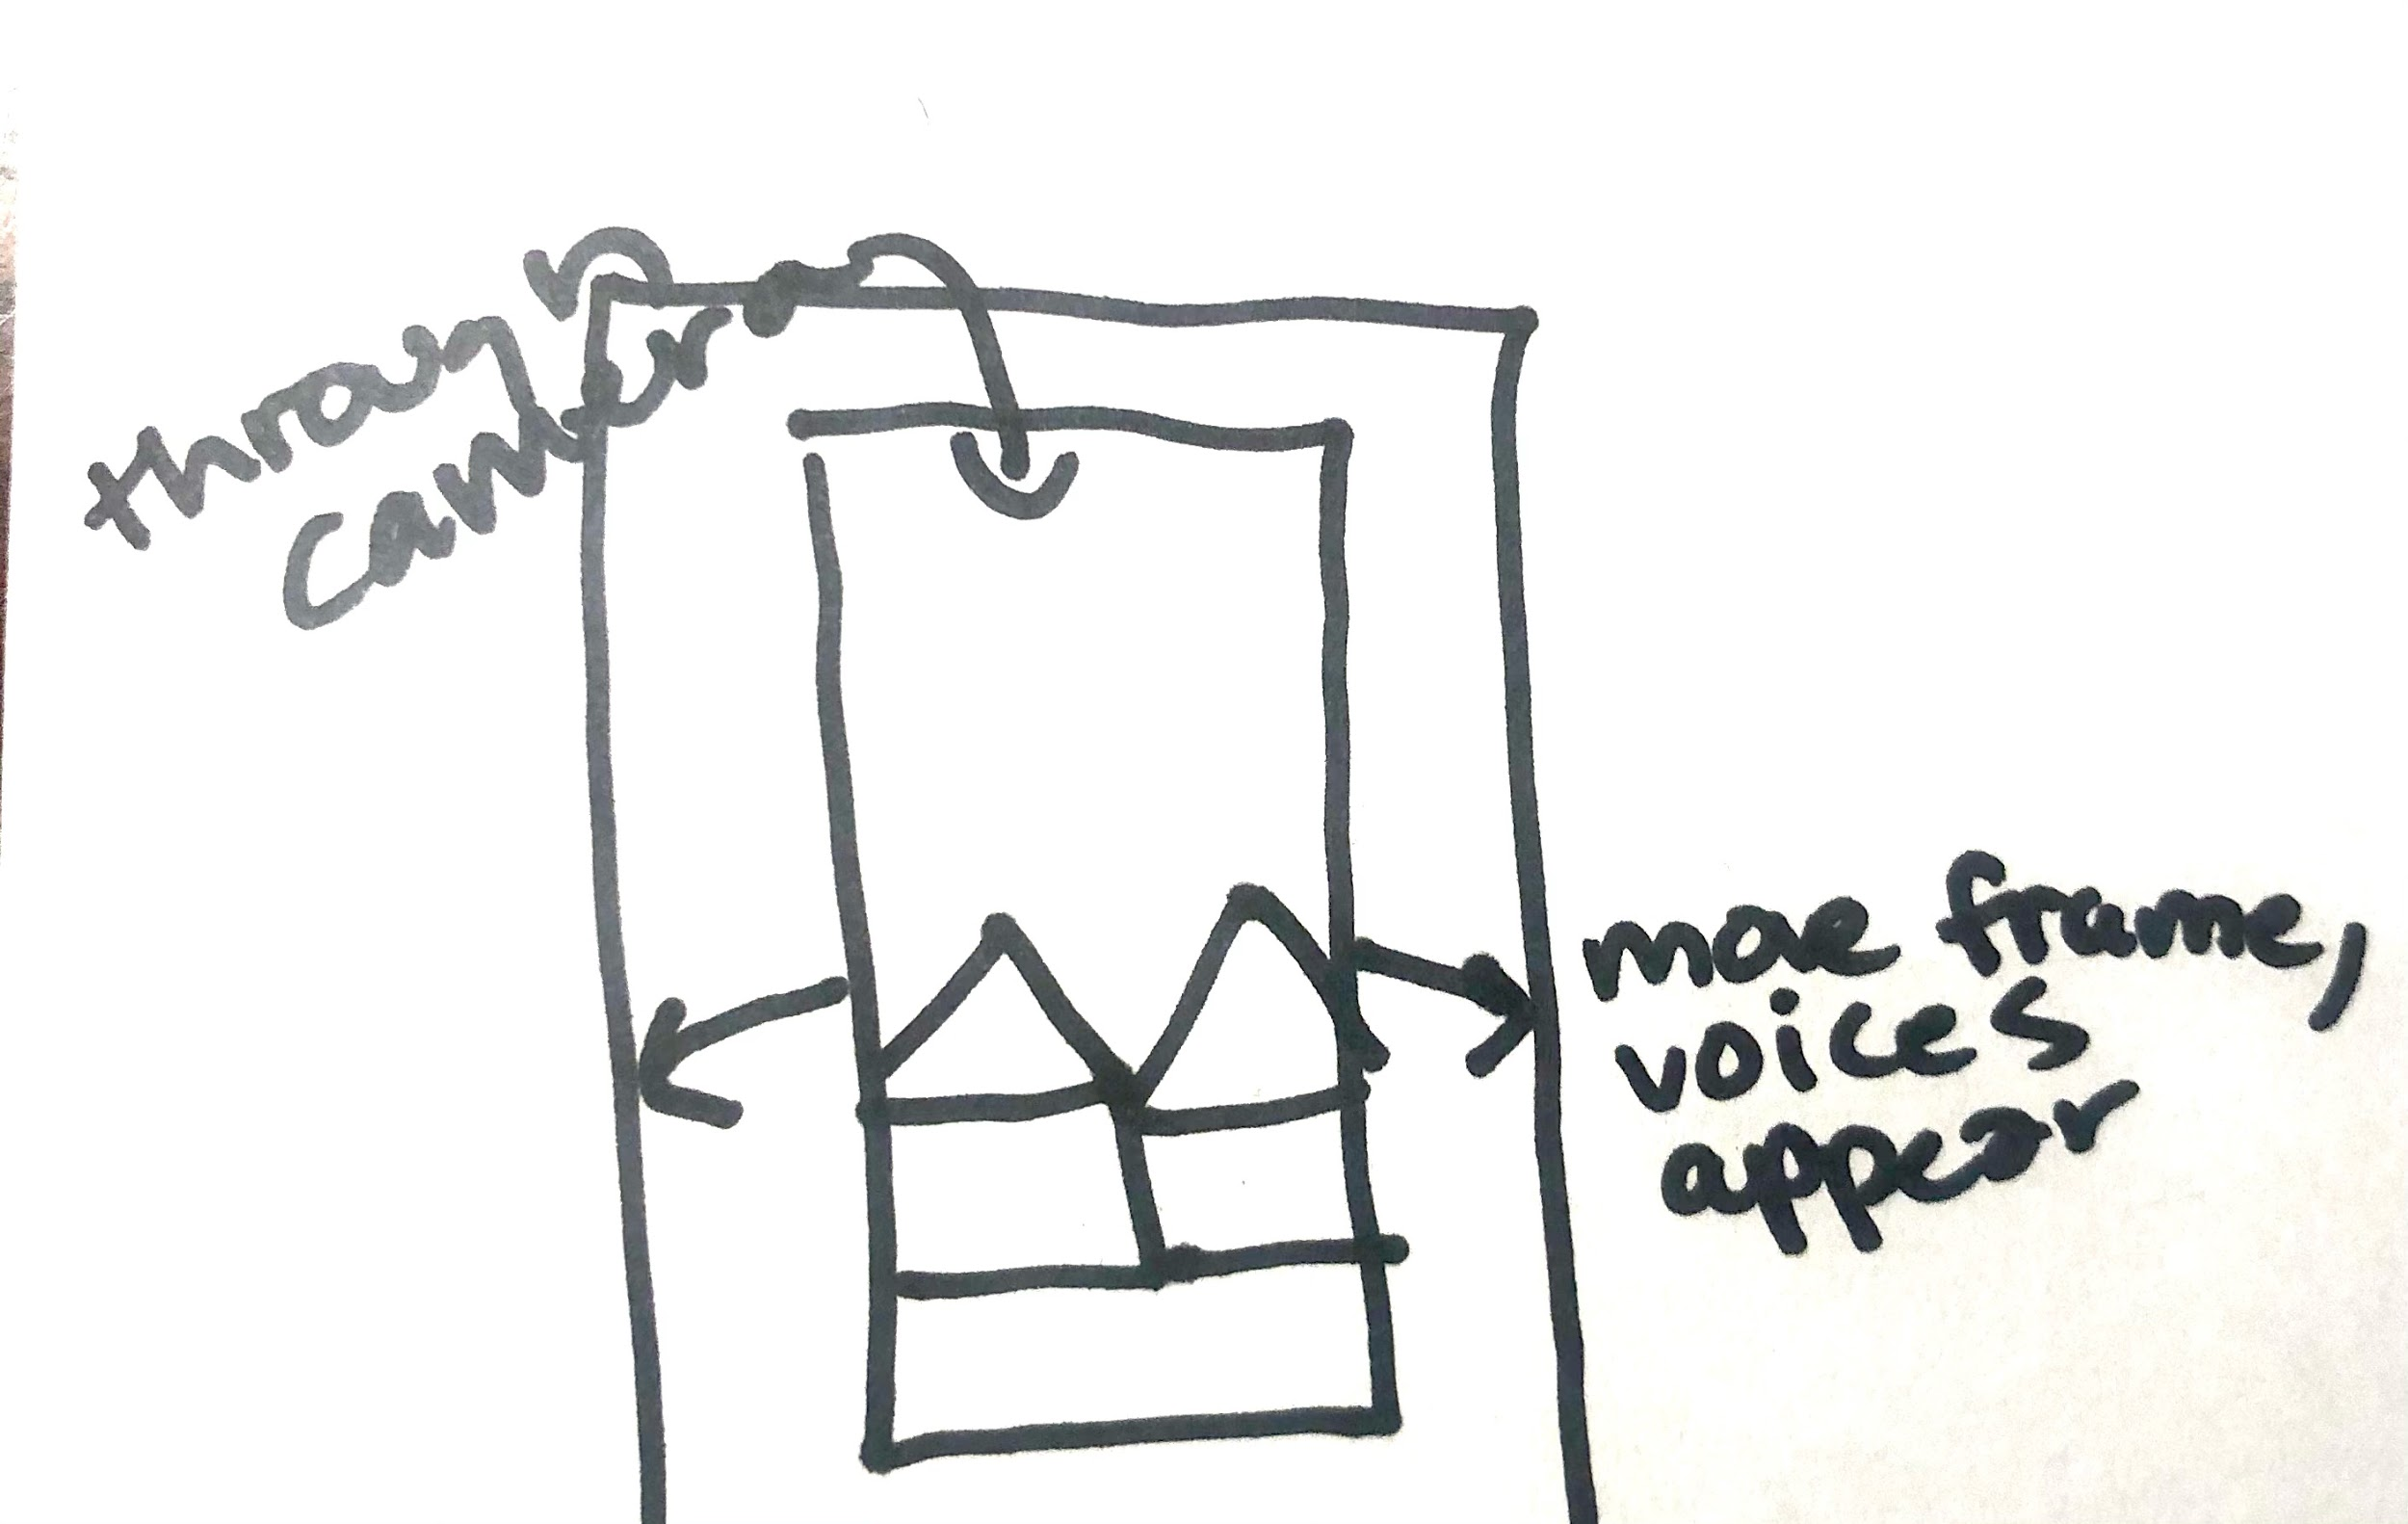 through
camera
move frame,
voices
appear